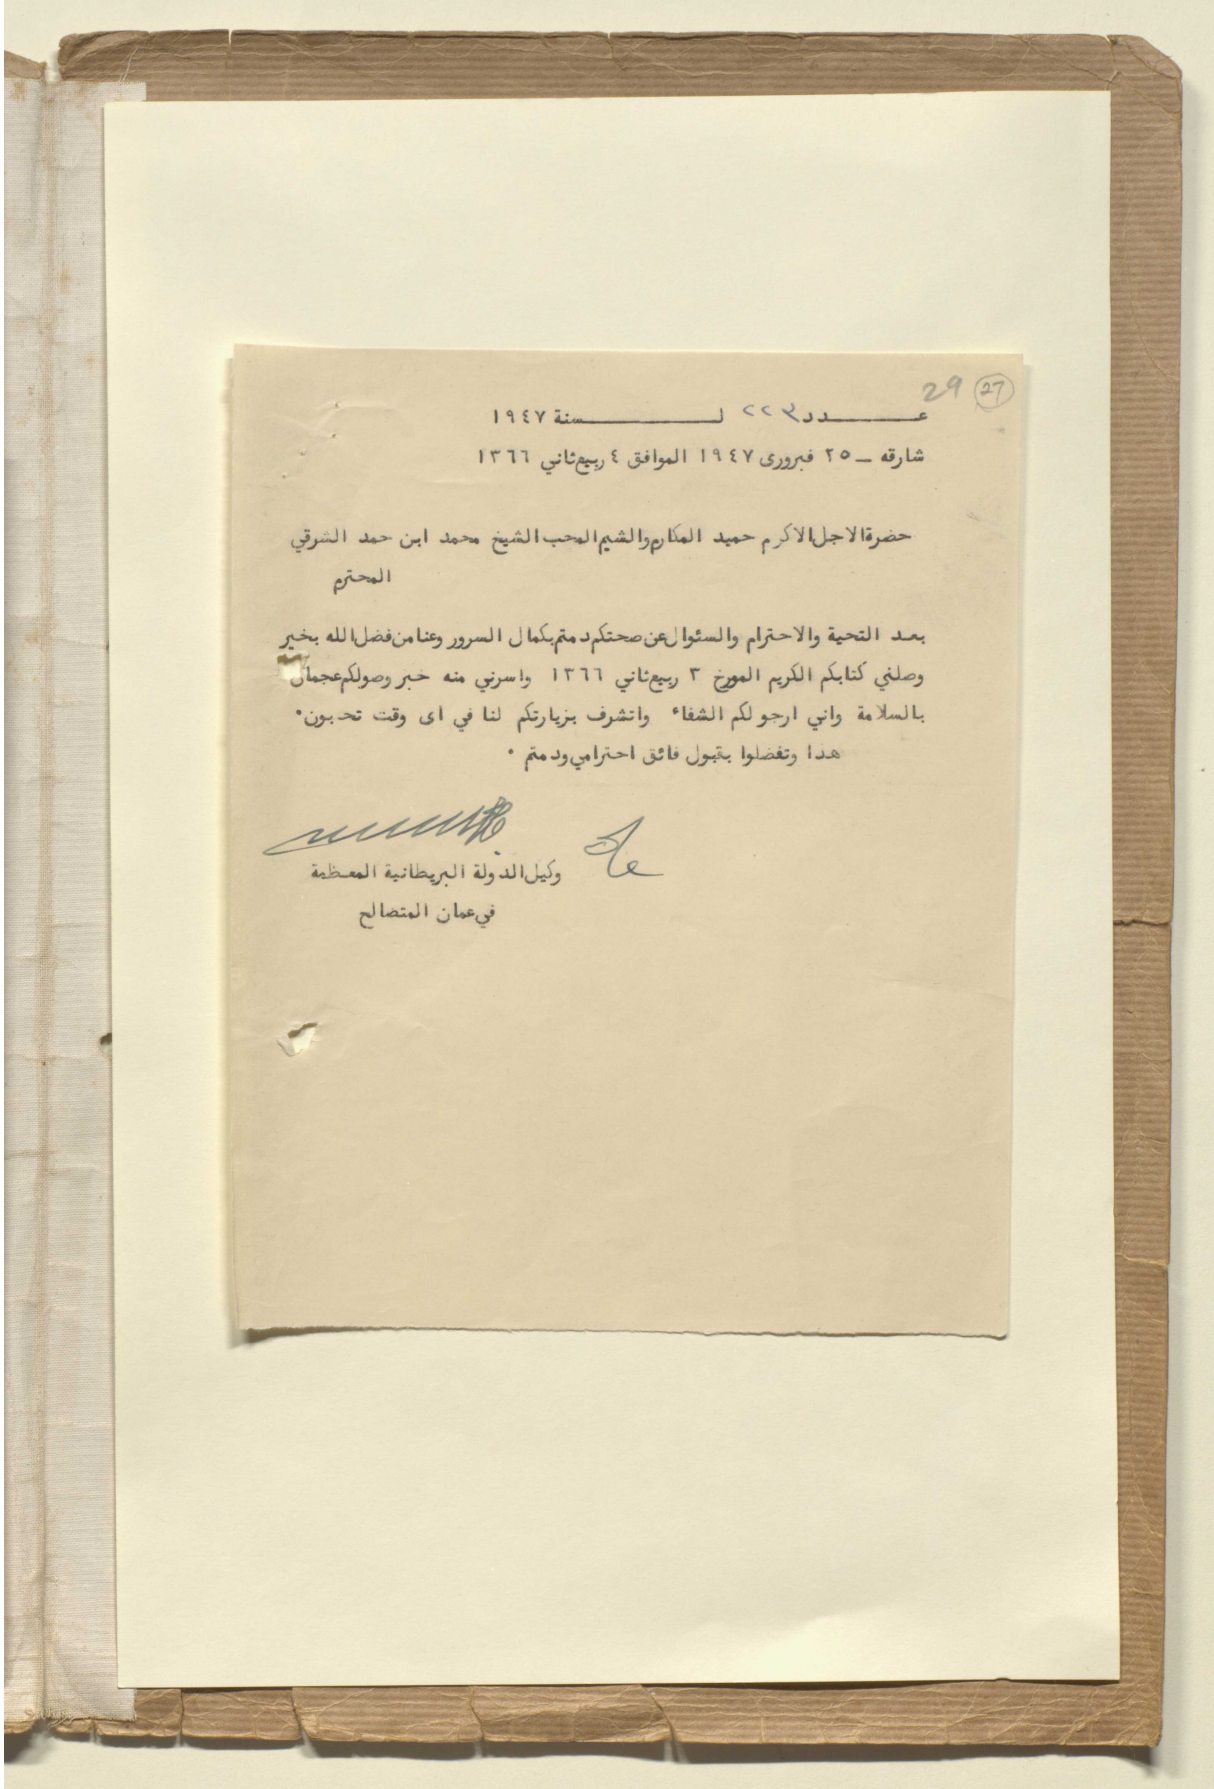 29 27
عـــــدد ٢٢٣ لـــــــــسنة ١٩٤٧
شارقه ــ ٢٥ فبرورى ١٩٤٧ الموافق ٤ ربيع ثاني ١٣٦٦
حضرة الاجل الاكرم حميد المكارم والشيم المحب الشيخ محمد ابن حمد الشرقي
المحترم
بعد التحية والاحترام والسئوال عن صحتكم دمتم بكمال السرور وعنا من فضل الله بخير
وصلني كتابكم الكريم المورخ ٣ ربيع ثاني ١٣٦٦ واسرني منه خبر وصولكم عجمان
بالسلامة واني ارجو لكم الشفاء واتشرف بزيارتكم لنا في اى وقت تحبون٠
هذا وتفضلوا بقبول فائق احترامي ودمتم ٠
وكيل الدولة البريطانية المعظمة
في عمان المتصالح